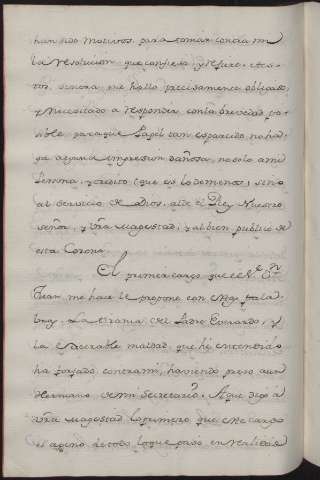 han sido motivos, para tomar contra mi
la resolucion que confiesa, y refiere. A es-
to, señora, me hallo precisamente obligado,
y necesitado a responder con la brevedad po-
sible, para que Papel tan esparcido no ha-
ga alguna impression dañosa, no solo a mi
Persona, y credito (que es lo de menos) sino
al servicio de Dios, al de el Rey Nuestro
señor, y Vra Magestad, y al bien publico de
esta Corona.
El primer cargo que el Sr. Dn
Juan me hace le propone con estas pala-
bras. La tirania del Padre Everardo, y
la execrable maldad, que he entendido
ha forjado contra mi, haviendo preso a un
Hermano de mi Secretario. A que digo a
Vra Magestad lo primero que este cargo
es ageno de todo lo que pasó en realidad